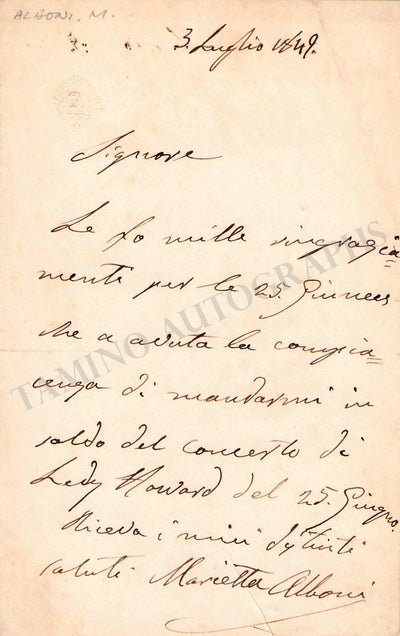 ALBONI, M.
3. Luglio 1849.
Signore
Le fo mille ringrazia=
menti per le 25. Guinees
che a avuta la compia=
cenza di mandarmi in
saldo del concerto di
Lady Howard del 25. Giugno.
Riceva i miei distinti
saluti. Marietta Alboni
TAMINO AUTOGRAPHS